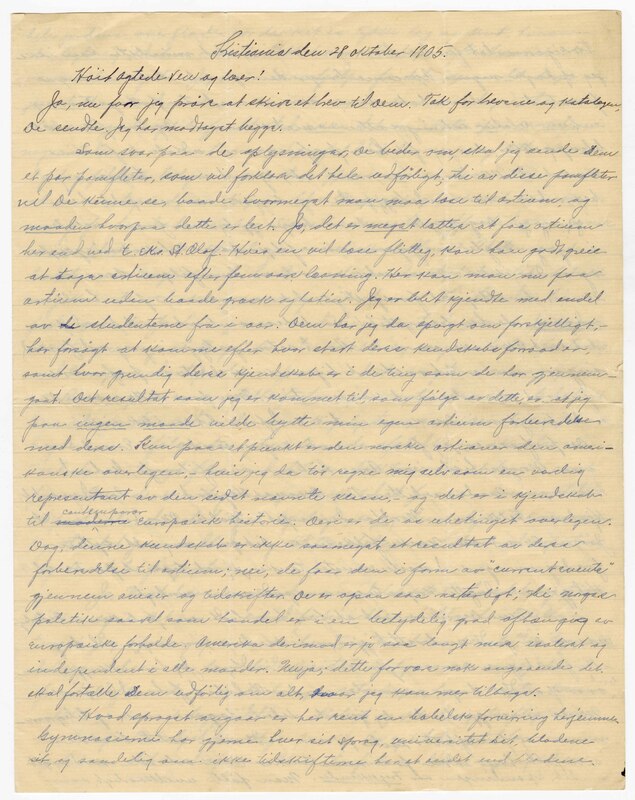 Kristiania den 28 oktober 1905.
Höit agtede ven og lærer!
Ja, nu faar jeg pröve at skrive et brev til Dem. Tak for brevene og katalogen,
De sendte. Jeg har modtaget begge.
Som svar paa de oplysninger, De beder om, skal jeg sende Dem
et par pamfleter, som vil forklare det hele udförligt, thi av disse pamfleter
vil De kunne se, baade hvormeget man maa læse til artium, og
maaden hvorpaa dette er læst. Jo, det er meget lettere at faa artium
her end ved St. Olaf. Hvis en vil læse flittig, kan han godt greie
at tage artium efter fem aars læsning. Her kan man nu faa
artium uden baade græsk og latin. Jeg er blit kjendt med endel
av studenterne fra i aar. Dem har jeg da spurgt om forskjelligt, -
har forsögt at komme efter hvor stort deres kundskabsforraad er,
samt hvor grundig deres kjendskab er i de ting som de har gjennem-
gaat. Det resultat som jeg er kommet til, som fölge av dette, er, at jeg
paa ingen maade vilde bytte min egen artium forberedelse
med deres. Kun paa et punkt er den norske artianer den ameri-
kanske overlegen, - hvis jeg da tör regne mig selv som en værdig
representant av den sidst nævnte klasse, - og det er i kjendskab
til moderne contemporær europæisk historie. Der er de os ubetinget overlegen.
Dog, denne kundskab er ikke saameget et resultat av deres
forberedelse til artium; nei, de faar den i form av "current events"
gjennem aviser og tidskrifter. Det er ogsaa saa naturligt; thi norges
politik saavel som handel er i en betydelig grad afhængig av
europæiske forholde. Amerika derimod er jo saa langt mer isoleret og
independent i alle maader. Nuja; dette faar være nok angaaende det.
skal fortælle Dem udförlig om alt, naar jeg kommer tilbage.
Hvad sproget angaar er her rent en babelsk forvirring herhjemme.
Gymnasierne har gjerne hver sit sprog, universitetet sit, bladene
sit, og sandelig om ikke tidskrifterne har et andet end bladene.